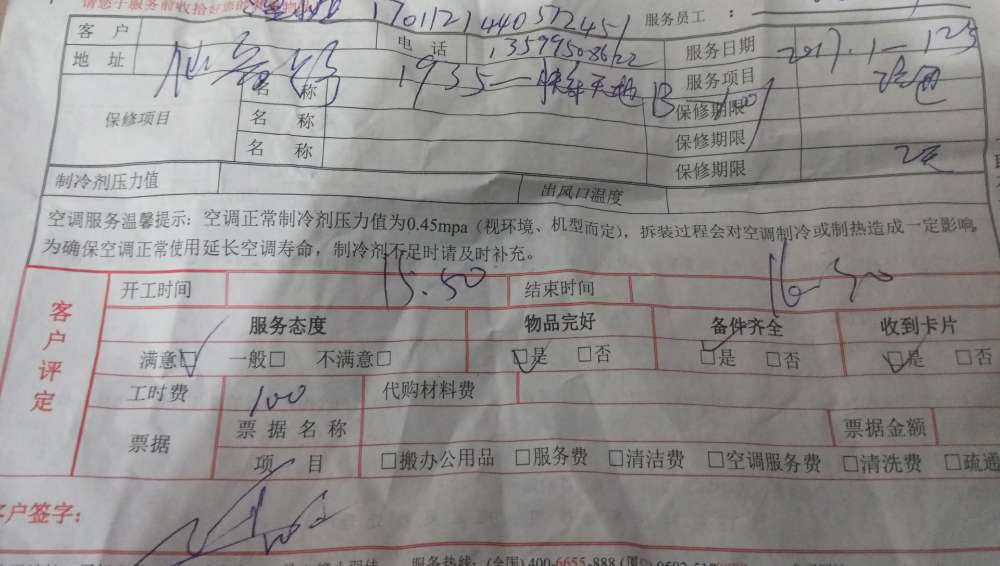 请您于服务前收拾
17011214405712451 服务员工 ：
客 户 电 话 13599508622 服务日期 2017.1-12
地 址 1935 服务项目
保修项目 名 称 保修期限
名 称 保修期限
名 称 保修期限
制冷剂压力值 出风口温度
空调服务温馨提示：空调正常制冷剂压力值为0.45mpa（视环境、机型而定），拆装过程会对空调制冷或制热造成一定影响，
为确保空调正常使用延长空调寿命，制冷剂不足时请及时补充。
客户评定
开工时间 15.50 结束时间 16-50
服务态度 物品完好 备件齐全 收到卡片
满意□ 一般□ 不满意□ □是 □否 □是 □否 □是 □否
工时费 100 代购材料费
票据 票 据 名 称 票据金额
项 目 □搬办公用品 □服务费 □清洁费 □空调服务费 □清洗费 □疏通
客户签字：
服务热线：(全国) 400-6655-888